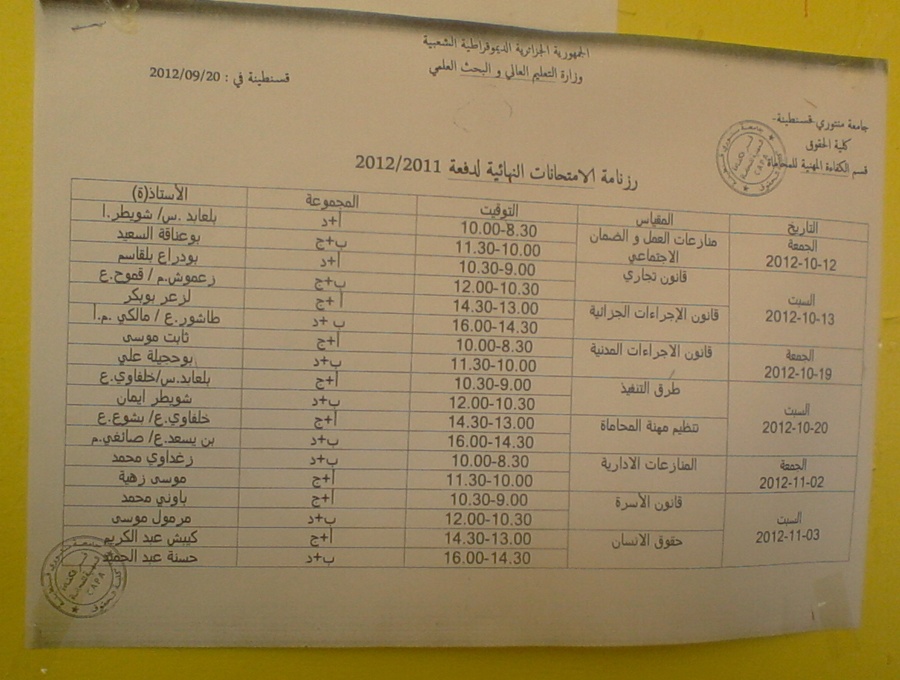 الجمهورية الجزائرية الديموقراطية الشعبية
وزارة التعليم العالي و البحث العلمي
قسنطينة في : 2012/09/20
جامعة منتوري-قسنطينة-
كلية الحقوق
قسم الكفاءة المهنية للمحاماة
CAPA
رزنامة الامتحانات النهائية لدفعة 2012/2011
التاريخ المقياس التوقيت المجموعة الأستاذ(ة)
الجمعة 2012-10-12 منازعات العمل و الضمان الاجتماعي 10.00-8.30 أ+د بلعابد .س/ شويطر.أ
11.30-10.00 ب+ج بوعناقة السعيد
السبت 2012-10-13 قانون تجاري 10.30-9.00 أ+د بودراع بلقاسم
12.00-10.30 ب+ج زعموش.م / قموح.ع
قانون الإجراءات الجزائية 14.30-13.00 أ+ج لزعر بوبكر
16.00-14.30 ب+د طاشور.ع / مالكي .م.أ
الجمعة 2012-10-19 قانون الاجراءات المدنية 10.00-8.30 أ+ج ثابت موسى
11.30-10.00 ب+د بوحجيلة علي
السبت 2012-10-20 طرق التنفيذ 10.30-9.00 أ+ج بلعابد.س/خلفاوي.ع
12.00-10.30 ب+د شويطر ايمان
تنظيم مهنة المحاماة 14.30-13.00 أ+ج خلفاوي.ع/ بشوع.ع
16.00-14.30 ب+د بن يسعد.ع/ صائغي.م
الجمعة 2012-11-02 المنازعات الادارية 10.00-8.30 ب+د زغداوي محمد
11.30-10.00 أ+ج موسى زهية
السبت 2012-11-03 قانون الأسرة 10.30-9.00 أ+ج باوني محمد
12.00-10.30 ب+د مرمول موسى
حقوق الانسان 14.30-13.00 أ+ج كيبش عبد الكريم
16.00-14.30 ب+د حسنة عبد الحميد
CAPA